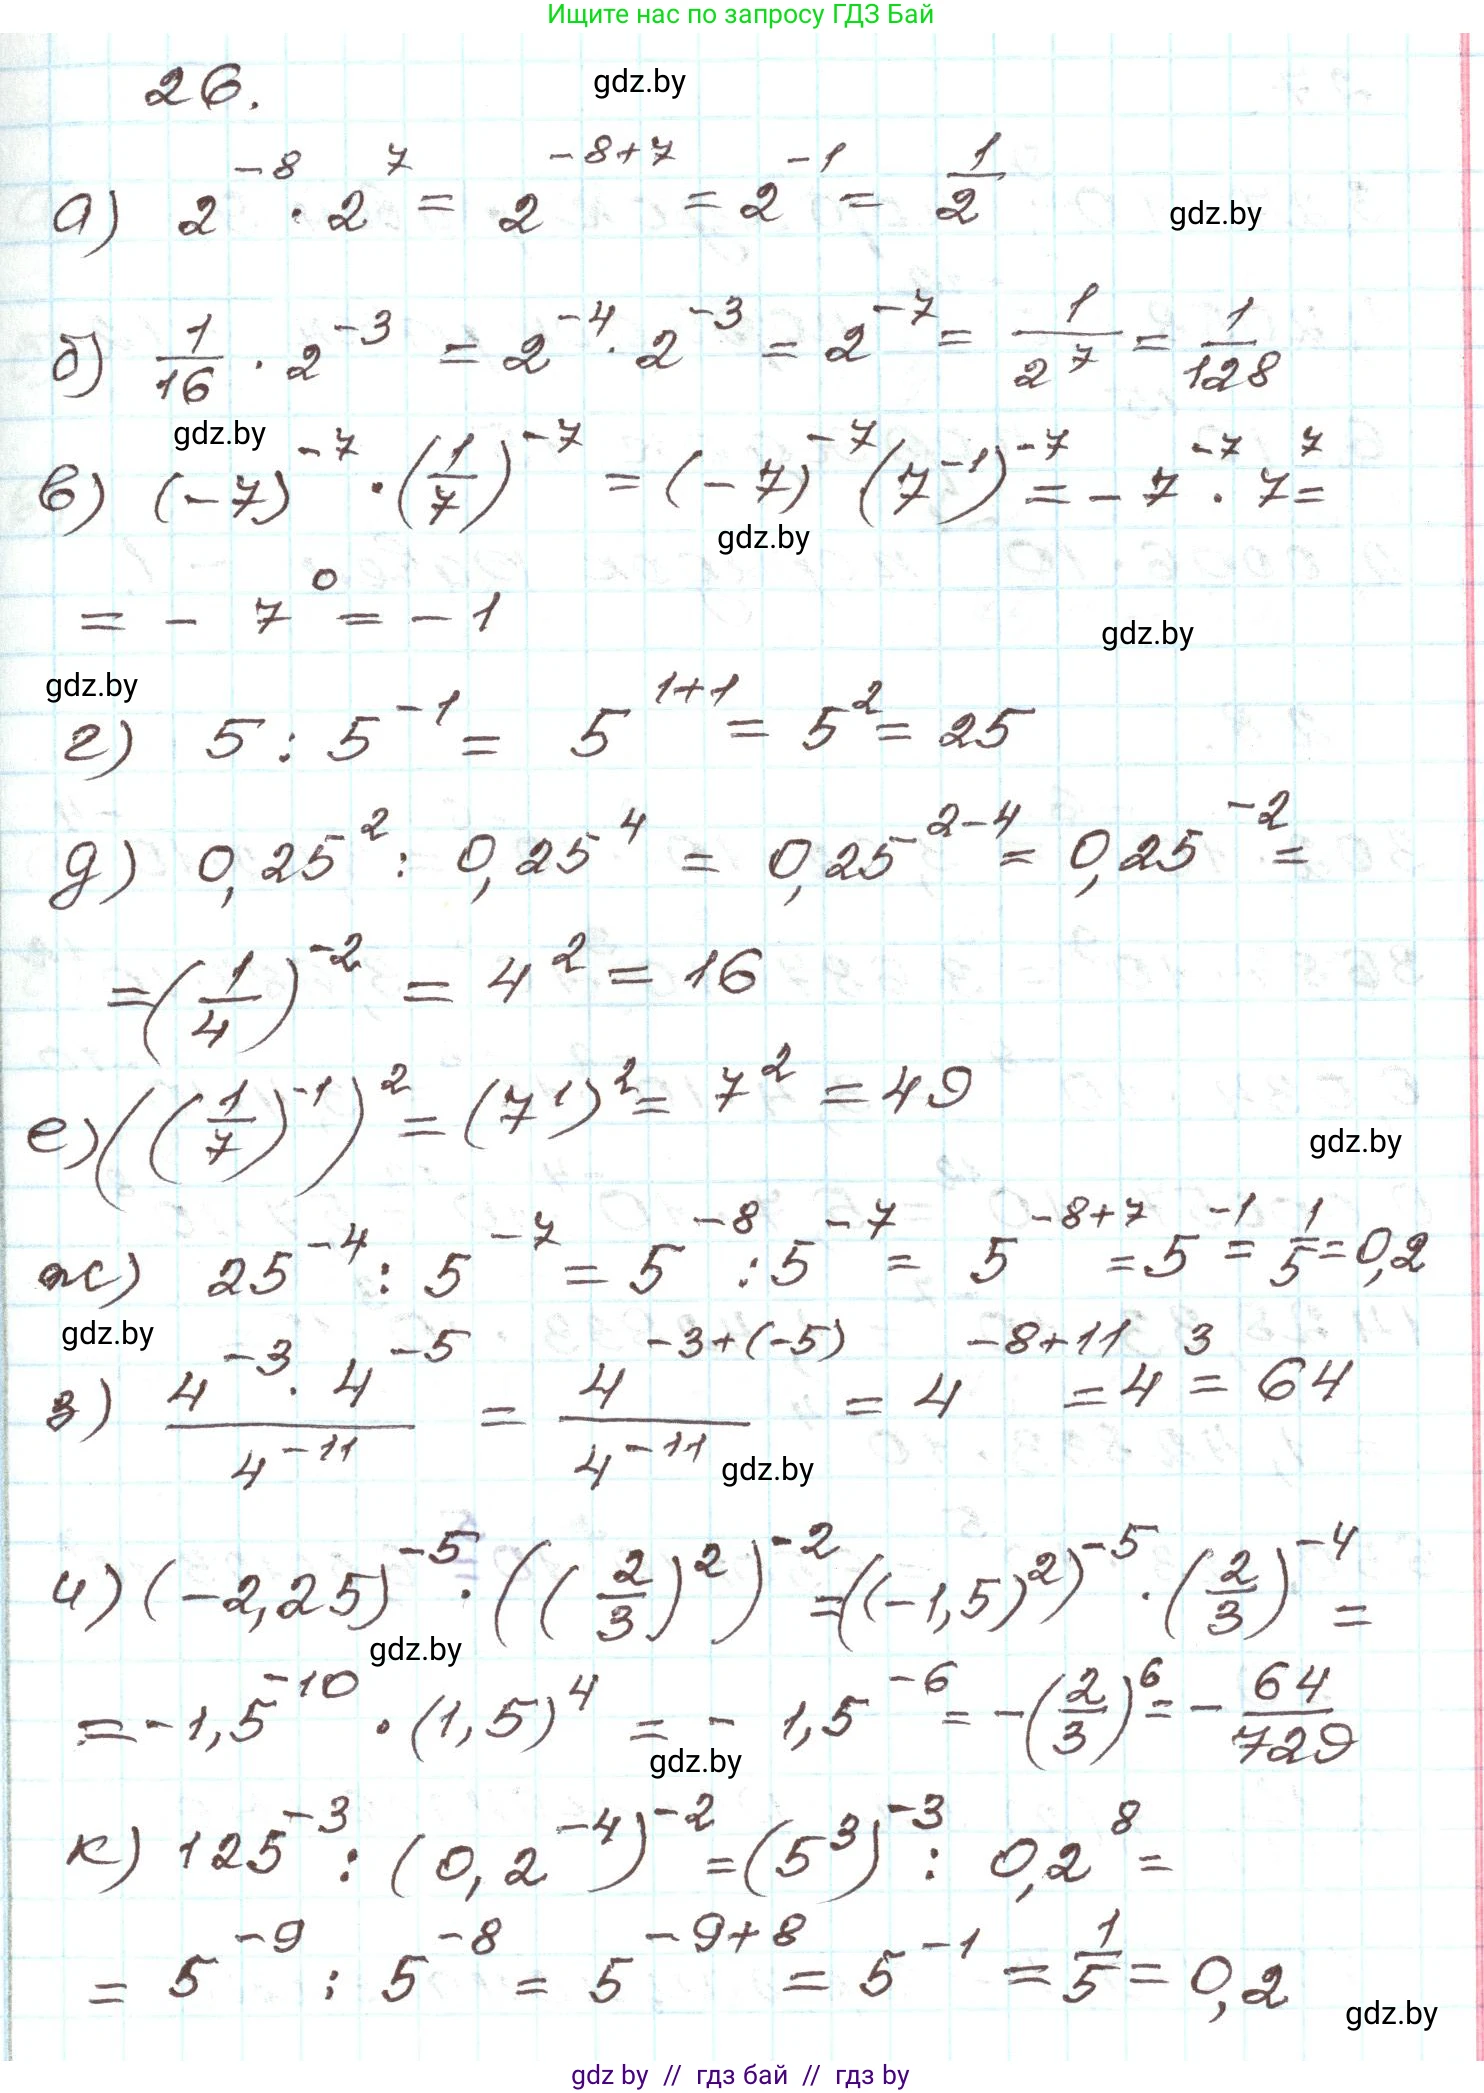 Ищите нас по запросу ГДЗ Бай
26.
gdz.by
а) 2^{-8} · 2^7 = 2^{-8+7} = 2^{-1} = 1/2
gdz.by
б) 1/16 · 2^{-3} = 2^{-4} · 2^{-3} = 2^{-7} = 1/2^7 = 1/128
gdz.by
в) (-7)^{-7} · (1/7)^{-7} = (-7)^{-7} (7^{-1})^{-7} = -7^{-7} · 7^7 =
gdz.by
= -7^0 = -1
gdz.by
gdz.by
г) 5 : 5^{-1} = 5^{1+1} = 5^2 = 25
д) 0,25^2 : 0,25^4 = 0,25^{2-4} = 0,25^{-2} =
= (1/4)^{-2} = 4^2 = 16
е) ((1/7)^{-1})^2 = (7^1)^2 = 7^2 = 49
gdz.by
ж) 25^{-4} : 5^{-7} = 5^{-8} : 5^{-7} = 5^{-8+7} = 5^{-1} = 1/5 = 0,2
gdz.by
з) (4^{-3} · 4^{-5})/4^{-11} = 4^{-3+(-5)}/4^{-11} = 4^{-8+11} = 4^3 = 64
gdz.by
и) (-2,25)^{-5} · ((2/3)^2)^{-2} = ((-1,5)^2)^{-5} · (2/3)^{-4} =
gdz.by
= -1,5^{-10} · (1,5)^4 = -1,5^{-6} = -(2/3)^6 = -64/729
gdz.by
к) 125^{-3} : (0,2^{-4})^{-2} = (5^3)^{-3} : 0,2^8 =
= 5^{-9} : 5^{-8} = 5^{-9+8} = 5^{-1} = 1/5 = 0,2
gdz.by
gdz by // гдз бай // гдз by